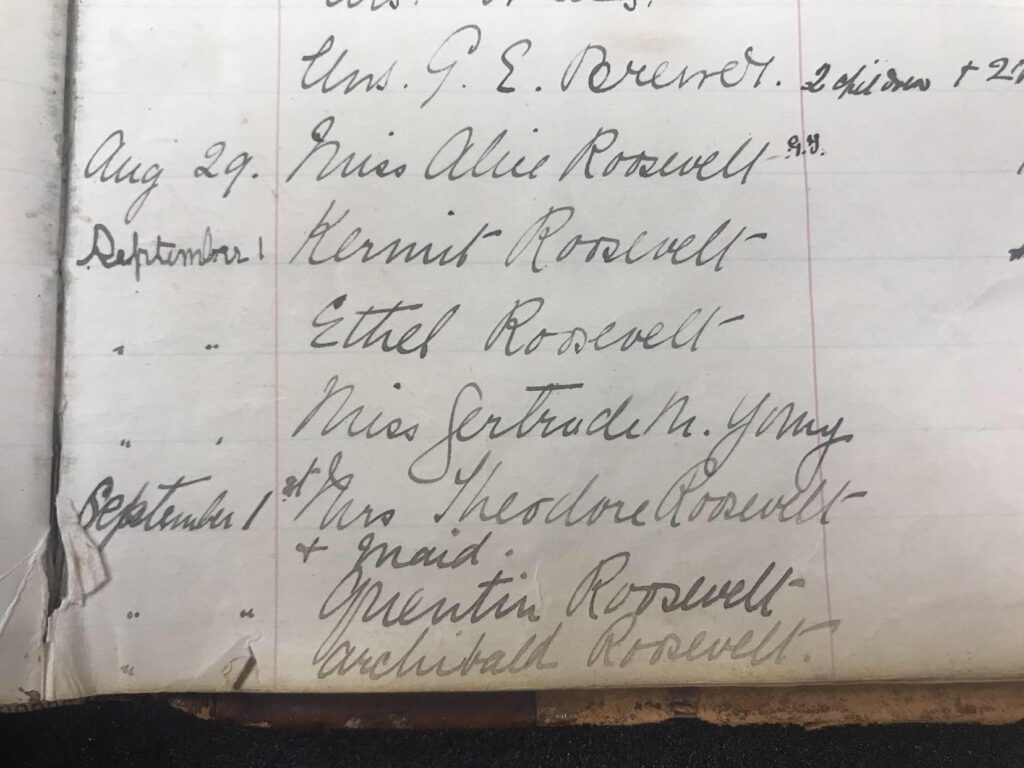 Mrs. G. E. Brewer. 2 children + 2
Aug 29. Miss Alice Roosevelt
September 1 Kermit Roosevelt
" " Ethel Roosevelt
" " Miss Gertrude M. Young
September 1st Mrs Theodore Roosevelt
+ maid.
" " Quentin Roosevelt
" " Archibald Roosevelt.